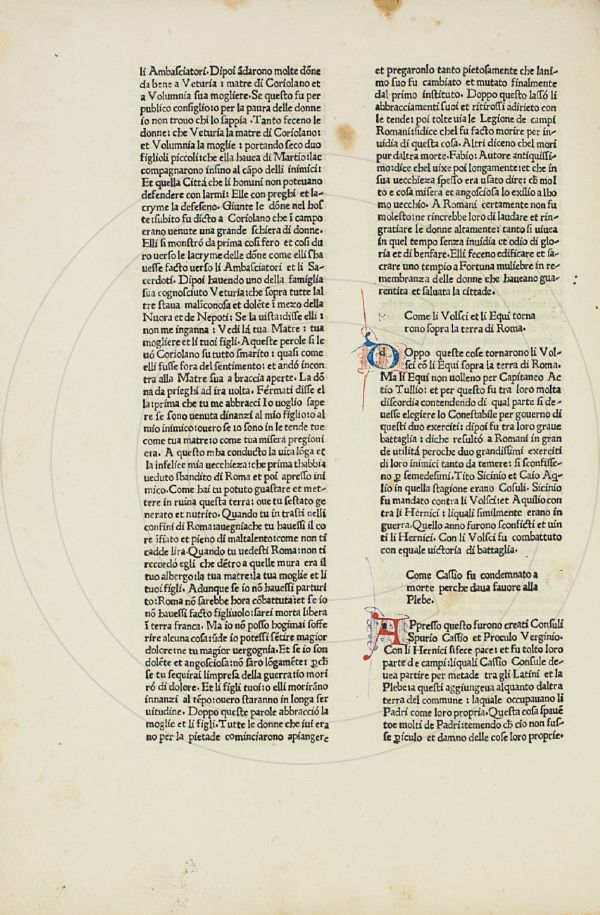 li Ambasciatori. Dipoi ãdarono molte dõne
da bene a Veturia: matre di Coriolano et
a Volumnia sua mogliere. Se questo fu per
publico consiglio: o per la paura delle donne
io non trouo chi lo sappia. Tanto feceno le
donne: che Veturia la matre di Coriolano:
et Volumnia la moglie: portando seco duo
figlioli piccoli: che ella haueа di Martio: lac
compagnarono insino al cãpo delli inimici:
Et quella Cittá che li homini non poteuano
defendere con larmi: Elle con prieghi et la-
cryme la defeseno. Giunte le dõne nel hos
te: subito fu dicto a Coriolano che ĩ campo
erano uenute una grande schiera di donne.
Elli si monstró da prima cosi fero et cosi du
ro uerso le lacryme delle dõne come elli sha
uesse facto uerso li Ambasciatori et li Sa-
cerdoti. Dipoi hauendo uno della famiglia
sua cognosciuto Veturia: che sopra tutte lal
tre staua maliconosa et dolẽte ĩ mezo della
Nuora et de Nepoti: Se la uista: disse elli:
non me inganna: Vedi lá tua Matre: tua
mogliere et li tuoi figli. A queste perole si le
uó Coriolano su tutto smarito: quasi come
elli fusse fora del sentimento: et andó incon
tra alla Matre sua a braccia aperte. La dõ
na da prieghi ad ira uolta. Férmati disse el
la: prima che tu me abbracci Io uoglio sape
re se io sono uenuta dinanzi al mio figlio: o al
mio inimico: ouero se io sono in le tende tue
come tua matre: o come tua misera pregioni
era. A questo mha conducto la uita lõga et
la infelice mia uecchieza: che prima thabbia
ueduto sbandito di Roma et poi apresso ini
mico. Come hai tu potuto guastare et met-
tere in ruina questa terra: oue tu se stato ge
nerato et nutrito. Quando tu intrasti nelli
confini di Roma: auegniache tu hauessi il co
re ĩfiato et pieno di maltalento: come non ti
cadde lira. Quando tu uedesti Roma: non ti
recordó egli che dẽtro a quelle mura era il
tuo albergo: la tua matre: la tua moglie et li
tuoi figli. Adunque se io nõ hauessi parturi
to: Roma nõ sarebbe hora cõbattuta: et se io
nõ hauessi facto figliuolo: sarei morta libera
ĩ terra franca. Ma io nõ posso hogimai soffe
rire alcuna cosa: ũde io potessi sẽtire magior
dolore: ne tu magior uergogna. Et se io son
dolẽte et angosciosa: nõ saro lõgamẽte: ꝑch̃
se tu sequirai limpresa della guerra: tio mori
ró di dolore. Et li figli tuoi: o elli morirãno
innanzi al tẽpo: ouero staranno in longa ser
uitudine. Doppo queste parole abbracció la
moglie et li figli. Tutte le donne che iui era
no per la pietade cominciarono apiangere
et pregaronlo tanto pietosamente che lani-
mo suo fu cambiato et mutato finalmente
dal primo instituto. Doppo questo lassó li
abbracciamenti suoi et ritirossi adirieto con
le tende: poi tolte uia le Legione de campi
Romani: si dice chel fu facto morire per in-
uidia di questa cosa. Altri diceno chel mori
pur daltra morte. Fabio: Autore antiquissi-
mo: dice chel uixe poi longamente: et che in
sua uecchieza spesso era usato dire: ch̃ mol
to e cosa misera et angosciosa lo exilio alho
mo uechio. A Romani certamente non fu
molesto: ne rincrebbe loro di laudare et rin-
gratiare le donne altamente: tanto si uiuea
in quel tempo senza inuidia et odio di glo-
ria et di benfare. Elli feceno edificare et sa-
crare uno tempio a Fortuna muliebre in re-
membranza delle donne che haueano gua-
rentita et saluata la cittade.
Come li Volsci et li Equi torna
rono sopra la terra di Roma.
DOppo queste cose tornarono li Vol-
sci cõ li Equi sopra la terra di Roma.
Ma li Equi non uolleno per Capitaneo Ac
tio Tullio: et per questo fu tra loro molta
discordia contendendo di qual parte si de-
uesse elegiere lo Conestabile per gouerno di
questi duo exerciti: dipoi fu tra loro graue
battaglia: di che resultó a Romani in gran
de utilitá peroche duo grandissimi exerciti
di loro inimici tanto da temere: si sconfisse-
no ꝑ semedesimi. Tito Sicinio et Caio Aq-
lio in quella stagione erano Cõsuli. Sicinio
fu mandato contra li Volsci: et Aquilio con
tra li Hernici: liquali similmente erano in
guerra. Quello anno furono sconficti et uin
ti li Hernici. Con li Volsci fu combattuto
con equale uictoria di battaglia.
Come Cassio fu condemnato a
morte perche daua fauore alla
Plebe.
APpresso questo furono creati Consuli
Spurio Cassio et Proculo Verginio.
Con li Hernici si fece pace: et fu tolto loro
parte de campi: liquali Cassio Consule de-
uea partire per metade tra gli Latini et la
Plebe: a questi aggiungeua alquanto daltra
terra del commune: laquale occupauano li
Padri come loro propria. Questa cosa spauẽ
toe molti de Padri: temendo ch̃ cio non fus-
se ꝑiculo et damno delle cose loro proprie.